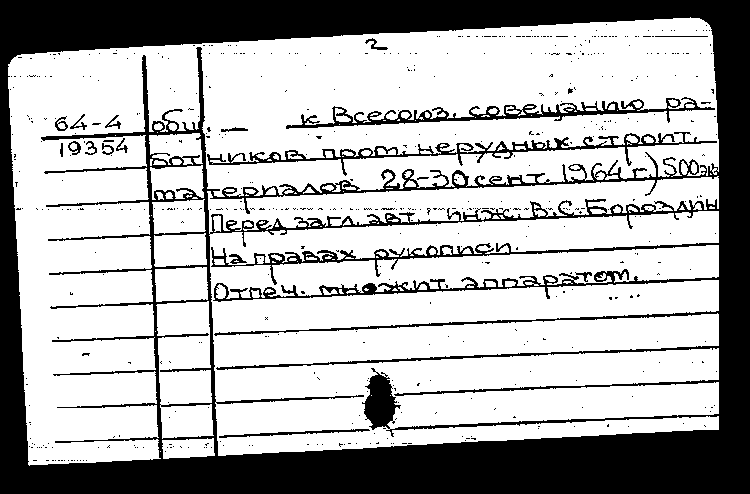 2
64-4 общ. — к Всесоюз. совещанию ра-
19354 ботников пром. нерудных строит.
материалов 28-30 сент. 1964 г.) 500 экз
Перед загл. авт.: инж. В.С. Бороздин
На правах рукописи.
Отпеч. множит. аппаратом.